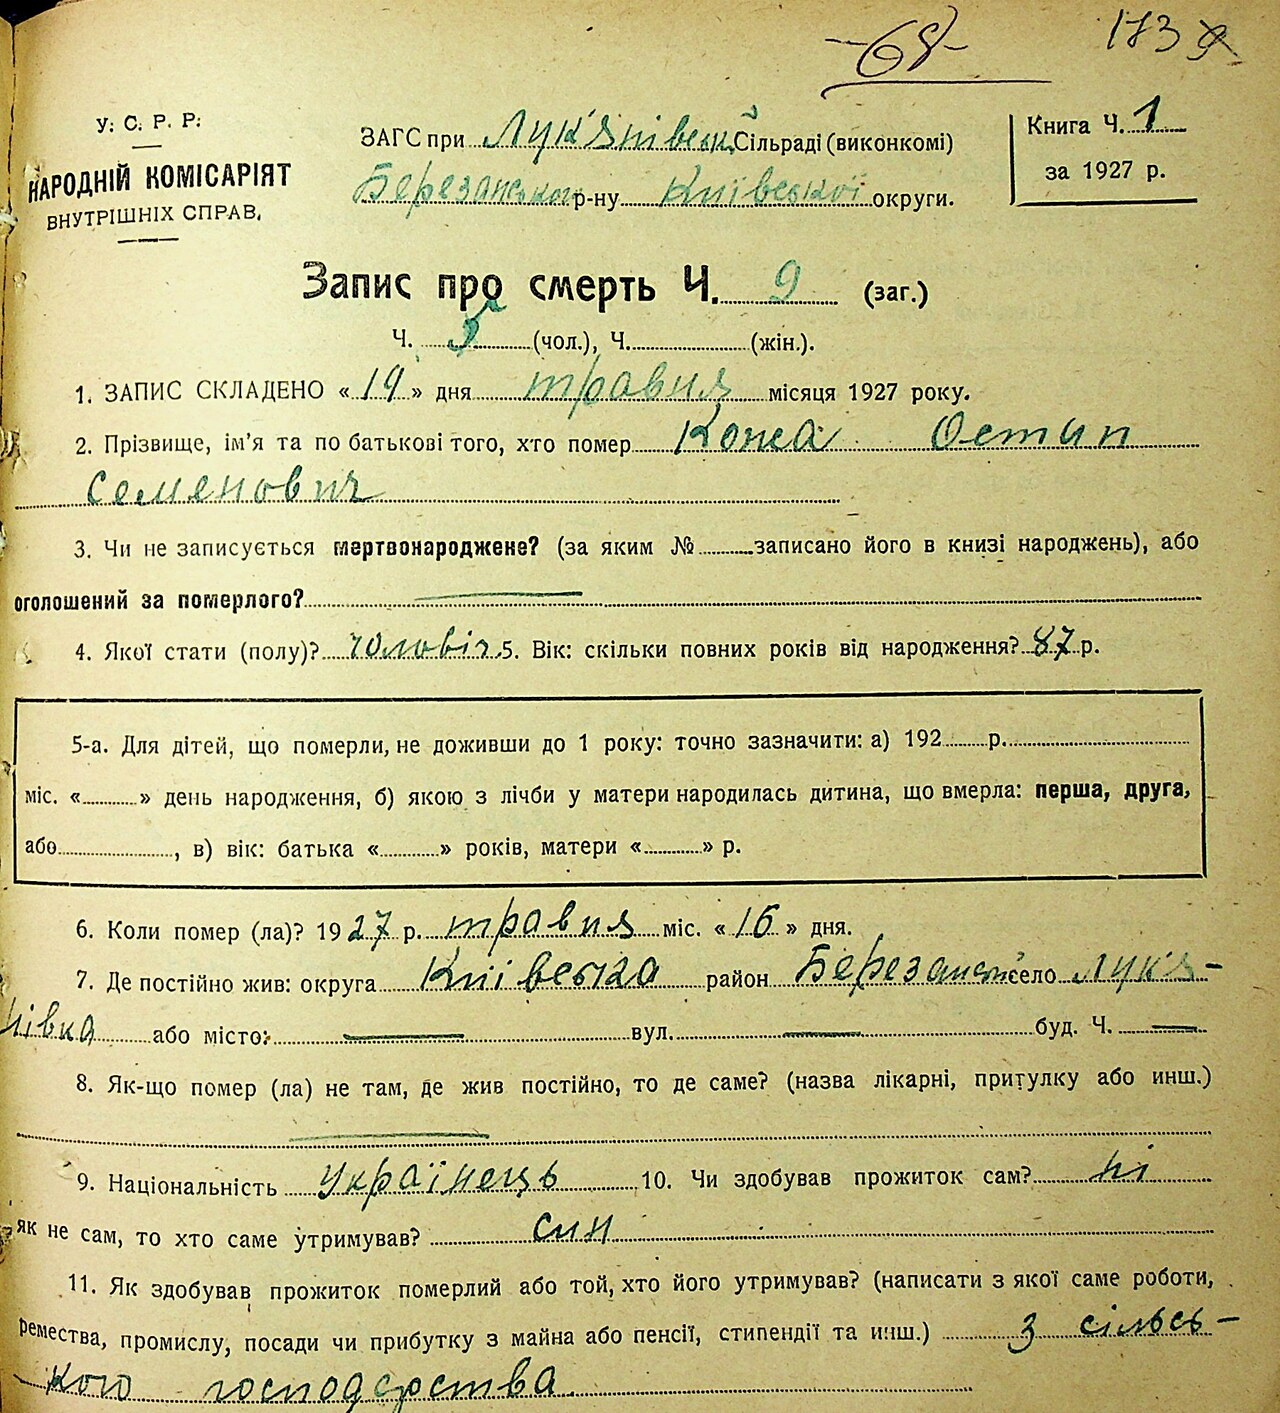 -68-
173
У. С. Р. Р.
НАРОДНІЙ КОМІСАРІЯТ
ВНУТРІШНІХ СПРАВ.
ЗАГС при Лук'янівськ. Сільраді (виконкомі)
Березанського р-ну Київської округи.
Книга Ч. 1
за 1927 р.
Запис про смерть Ч. 9 (заг.)
Ч. 5 (чол.), Ч. (жін.).
1. ЗАПИС СКЛАДЕНО « 19 » дня травня місяця 1927 року.
2. Прізвище, ім'я та по батькові того, хто помер Кожа Остип
Семенович
3. Чи не записується мертвонароджене? (за яким № записано його в книзі народжень), або
оголошений за померлого? —
4. Якої стати (полу)? чоловіч. 5. Вік: скільки повних років від народження? 87 р.
5-а. Для дітей, що померли, не доживши до 1 року: точно зазначити: а) 192 р.
міс. « » день народження, б) якою з лічби у матери народилась дитина, що вмерла: перша, друга,
або , в) вік: батька « » років, матери « » р.
6. Коли помер (ла)? 1927 р. травня міс. « 16 » дня.
7. Де постійно жив: округа Київська район Березанськ село Лук'я-
нівка або місто: — вул. — буд. Ч. —
8. Як-що помер (ла) не там, де жив постійно, то де саме? (назва лікарні, притулку або инш.)
—
9. Національність Українець 10. Чи здобував прожиток сам? ні
як не сам, то хто саме утримував? син
11. Як здобував прожиток померлий або той, хто його утримував? (написати з якої саме роботи,
ремества, промислу, посади чи прибутку з майна або пенсії, стипендії та инш.) з сільсь-
кого господарства